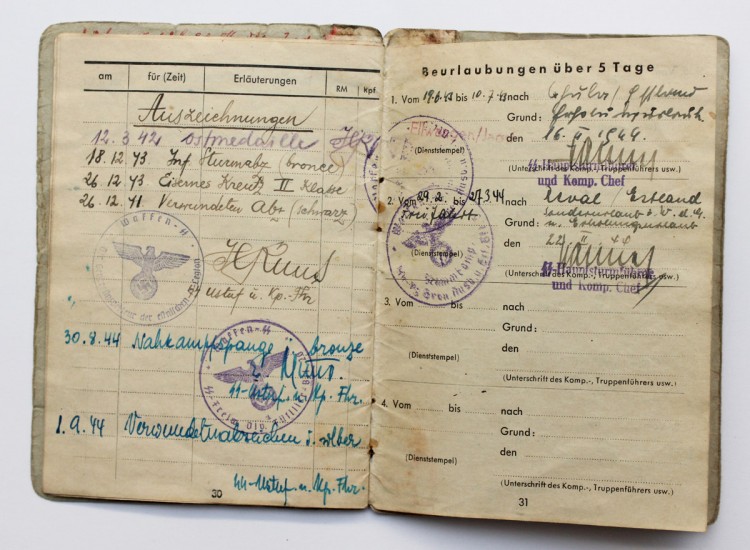 am für (Zeit) Erläuterungen RM Kpf.
Auszeichnungen
12.3.42 Ostmedaille
18.12.43 Inf Sturmabz (bronce)
26.12.43 Eisernes Kreuz II Klasse
26.12.41 Verwundeten Abz (schwarz)
Waffen-SS
Ustuf u. Kp.-Fhr
30.8.44 Nahkampfspange i. bronze
Waffen-SS
SS-Ustuf. u. Kp. Fhr.
1.9.44 Verwundetenabzeichen i. silber
SS-Ustuf. u. Kp. Fhr.
30
Beurlaubungen über 5 Tage
1. Vom bis 10.7.43 nach
Grund: Erholungsurlaub
Ellwangen/Jagst
den 16. 1944
(Dienststempel)
(Unterschrift des Komp.-, Truppenführers usw.)
SS-Hauptsturmführer
und Komp. Chef
2. Vom 29.2. bis 27.3.44 nach Reval / Estland
Grund: Sonderurlaub
u. Erholungsurlaub
den 22 II 44
(Dienststempel)
(Unterschrift des Komp.-, Truppenführers usw.)
SS-Hauptsturmführer
und Komp. Chef
3. Vom bis nach
Grund:
den
(Dienststempel)
(Unterschrift des Komp.-, Truppenführers usw.)
4. Vom bis nach
Grund:
den
(Dienststempel)
(Unterschrift des Komp.-, Truppenführers usw.)
31